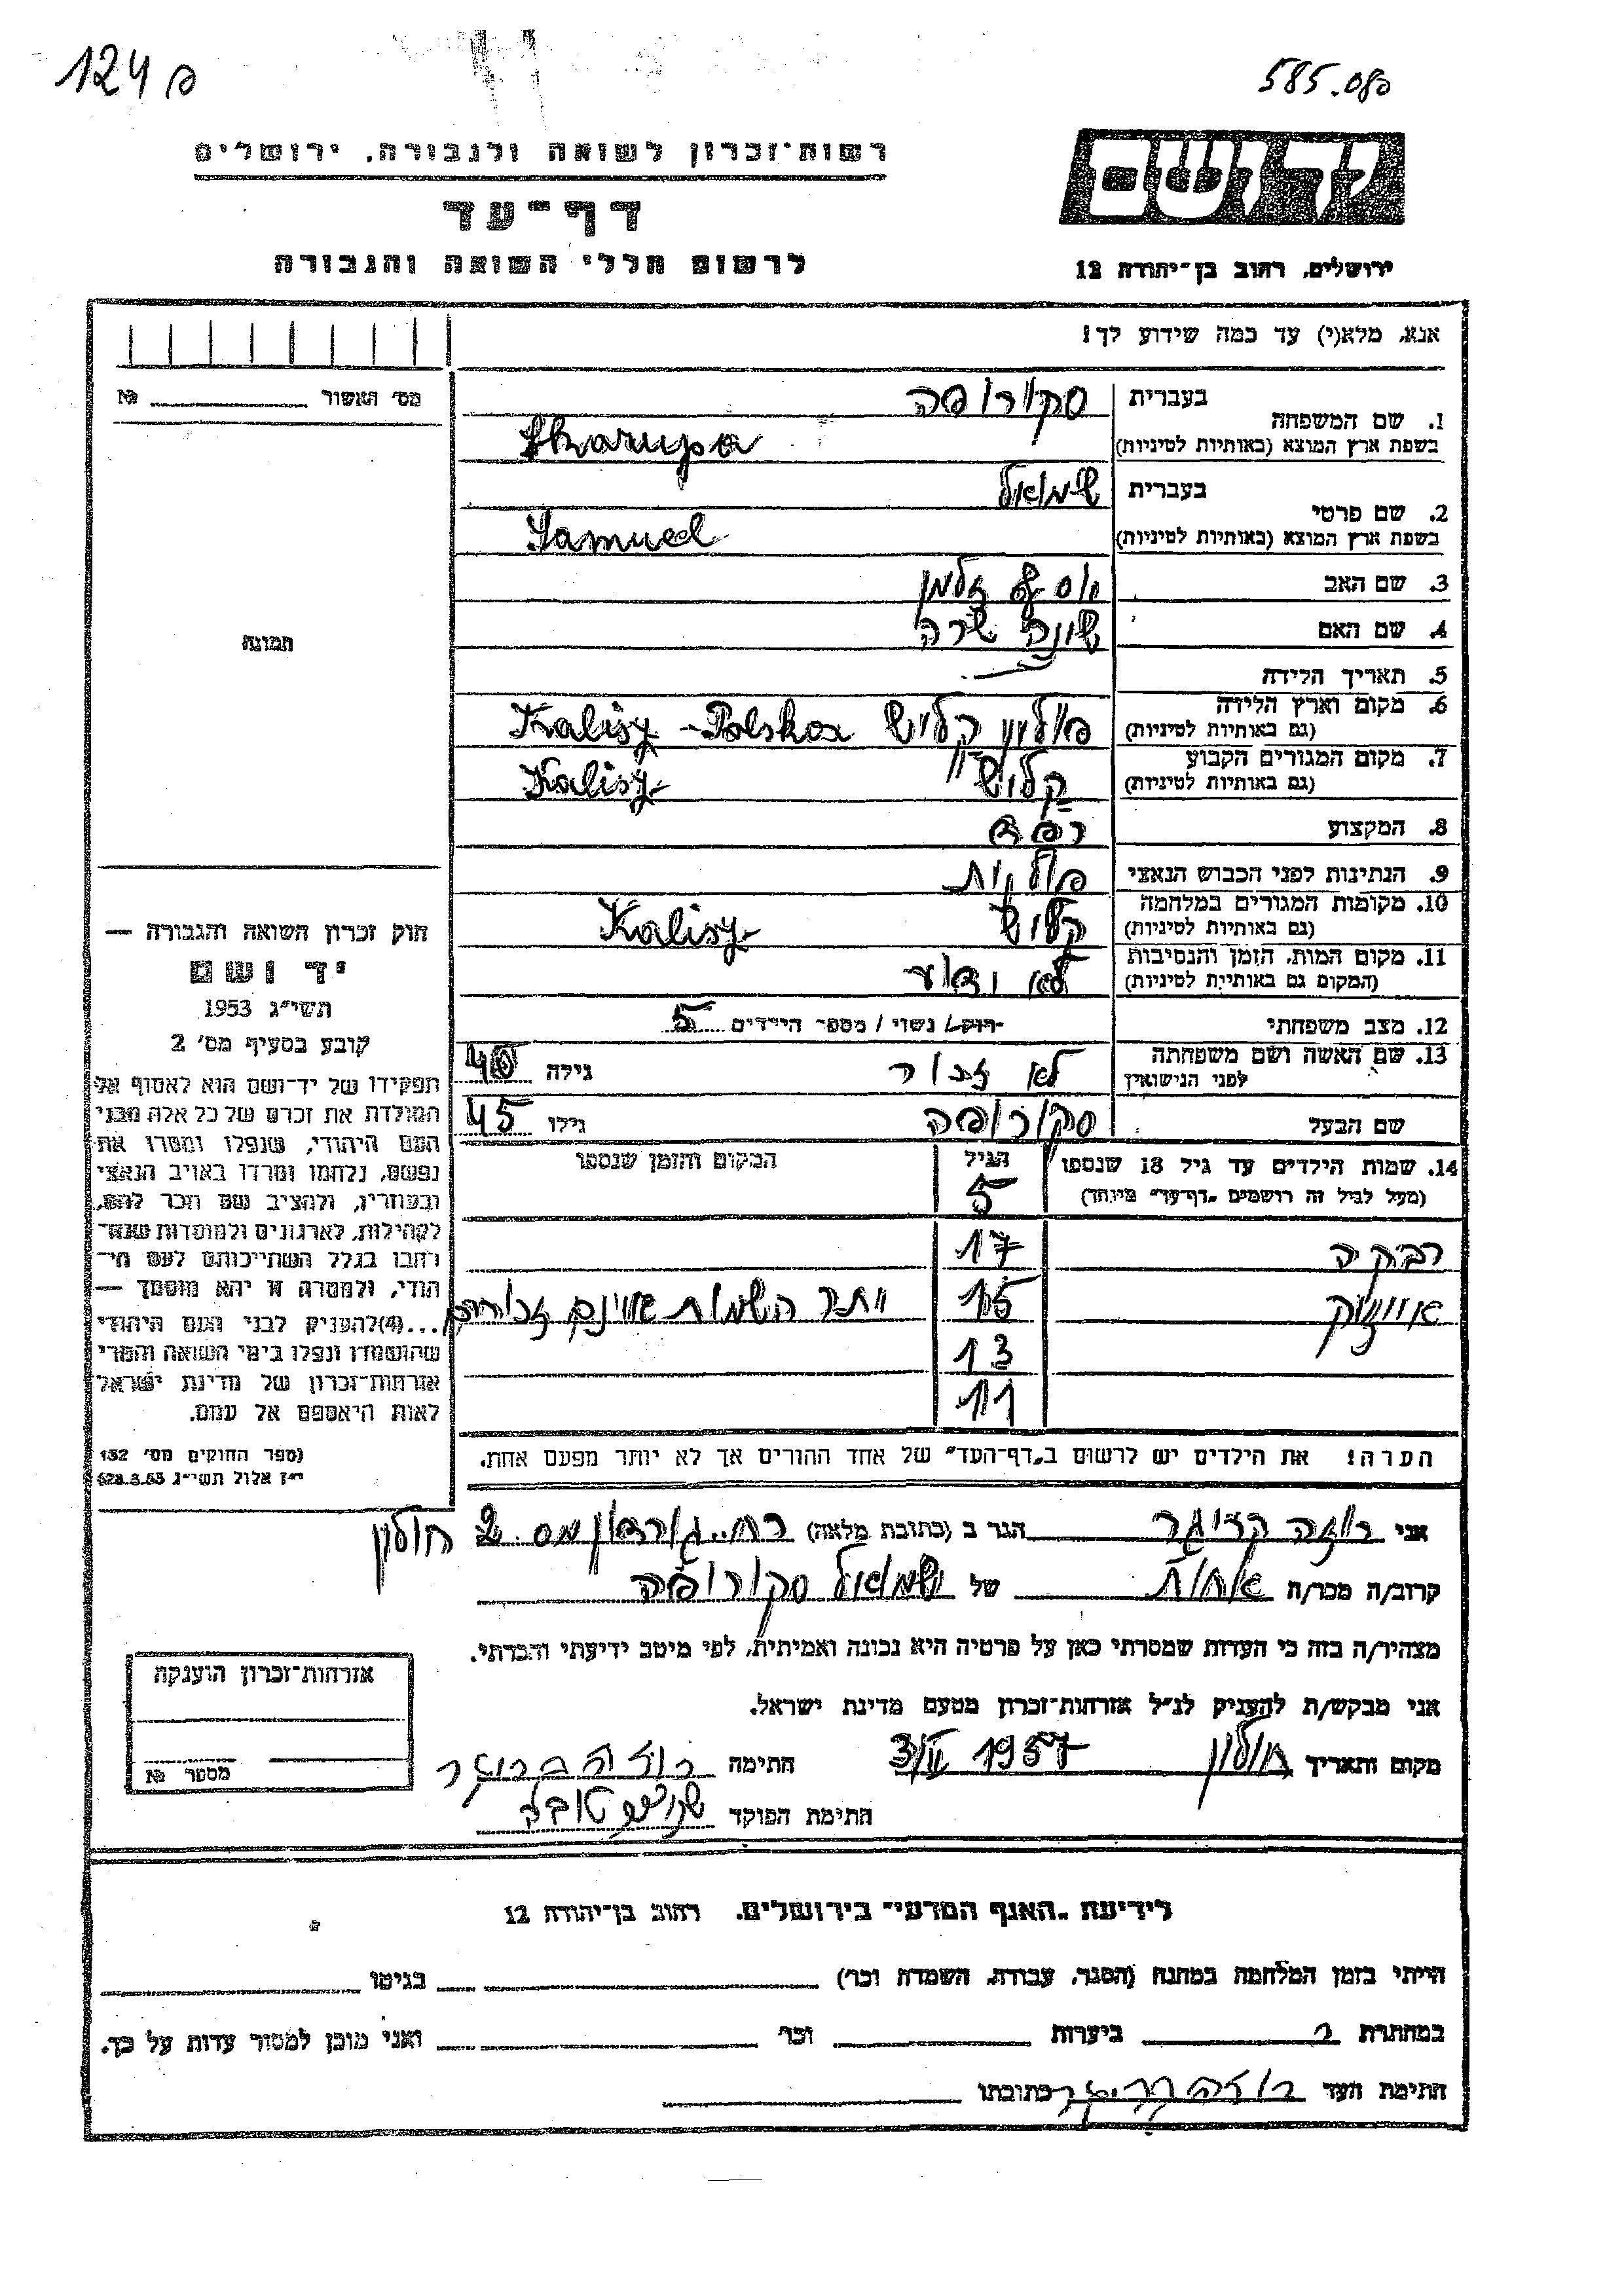 124 פ
585.080
רשות־זכרון לשואה ולגבורה, ירושלים
יד ושם
דף־עד
לרשום חללי השואה והגבורה
ירושלים, רחוב בן־יהודה 12
אנא, מלא(י) עד כמה שידוע לך!
מס׳ האשור № ________
1. שם המשפחה בעברית סקורופה
בשפת ארץ המוצא (באותיות לטיניות) Skorupa
2. שם פרטי בעברית שמואל
בשפת ארץ המוצא (באותיות לטיניות) Samuel
3. שם האב יוסף זלמן
4. שם האם שונה שרה
5. תאריך הלידה —
6. מקום וארץ הלידה (גם באותיות לטיניות) פולין קליש Kalisz - Polska
7. מקום המגורים הקבוע (גם באותיות לטיניות) קליש Kalisz
8. המקצוע
9. הנתינות לפני הכבוש הנאצי פולנית
10. מקומות המגורים במלחמה (גם באותיות לטיניות) קליש Kalisz
11. מקום המות, הזמן והנסיבות (המקום גם באותיות לטיניות) לא ידוע
12. מצב משפחתי רוק/ נשוי / מספר הילדים 5
13. שם האשה ושם משפחתה לפני הנישואין לא זכור גילה 40
שם הבעל סקורופה גילו 45
14. שמות הילדים עד גיל 18 שנספו (מעל לגיל זה רושמים „דף־עד״ מיוחד)
הגיל
המקום והזמן שנספו
5
רבקה 17
אייזיק 15 יתר השמות אינם זכורים
13
11
תמונה
חוק זכרון השואה והגבורה —
יד ושם
תשי״ג 1953
קובע בסעיף מס׳ 2
תפקידו של יד־ושם הוא לאסוף אל
המולדת את זכרם של כל אלה מבני
העם היהודי, שנפלו ומסרו את
נפשם, נלחמו ומרדו באויב הנאצי
ובעוזריו, ולהציב שם וזכר להם,
לקהילות, לארגונים ולמוסדות שנח־
רבו בגלל השתייכותם לעם הי־
הודי, ולמטרה זו יהא מוסמך —
...(4) להעניק לבני העם היהודי
שהושמדו ונפלו בימי השואה והמרי
אזרחות־זכרון של מדינת ישראל
לאות היאספם אל עמם.
(ספר החוקים מס׳ 132
י״ז אלול תשי״ג 28.8.53)
הערה! את הילדים יש לרשום ב„דף־העד״ של אחד ההורים אך לא יותר מפעם אחת.
אני רוזה הגר ב (כתובת מלאה) רח. גורדון מס 2 חולון
קרוב/ה מכר/ה אחות של שמואל סקורופה
מצהיר/ה בזה כי העדות שמסרתי כאן על פרטיה היא נכונה ואמיתית, לפי מיטב ידיעתי והכרתי.
אני מבקש/ת להעניק לנ״ל אזרחות־זכרון מטעם מדינת ישראל.
מקום ותאריך חולון 1957 חתימה רוזה
חתימת הפוקד
אזרחות־זכרון הוענקה
מספר №
לידיעת „האגף המדעי״ בירושלים, רחוב בן־יהודה 12
הייתי בזמן המלחמה במחנה (הסגר, עבודה, השמדה וכו׳) ________ בגיטו ________
במחתרת ________ ביערות ________ וכו׳ ________ ואני מוכן למסור עדות על כך.
חתימת העד רוזה כתובתו ________